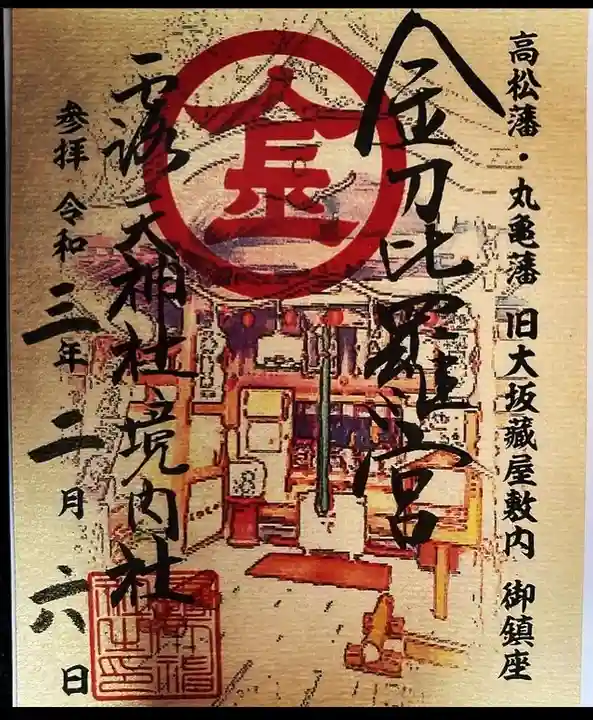 高松藩・丸亀藩 旧大坂蔵屋敷内 御鎮座
金刀比羅宮
金
露天神社境内社
参拝 令和三年二月六日